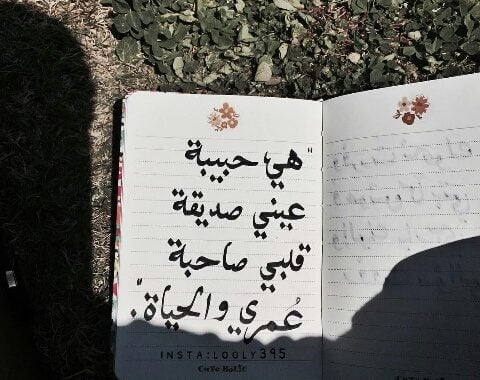 "هي حبيبة
عيني صديقة
قلبي صاحبة
عُمري والحياة".
INSTA:LOOLY395
CuTe HoLiC